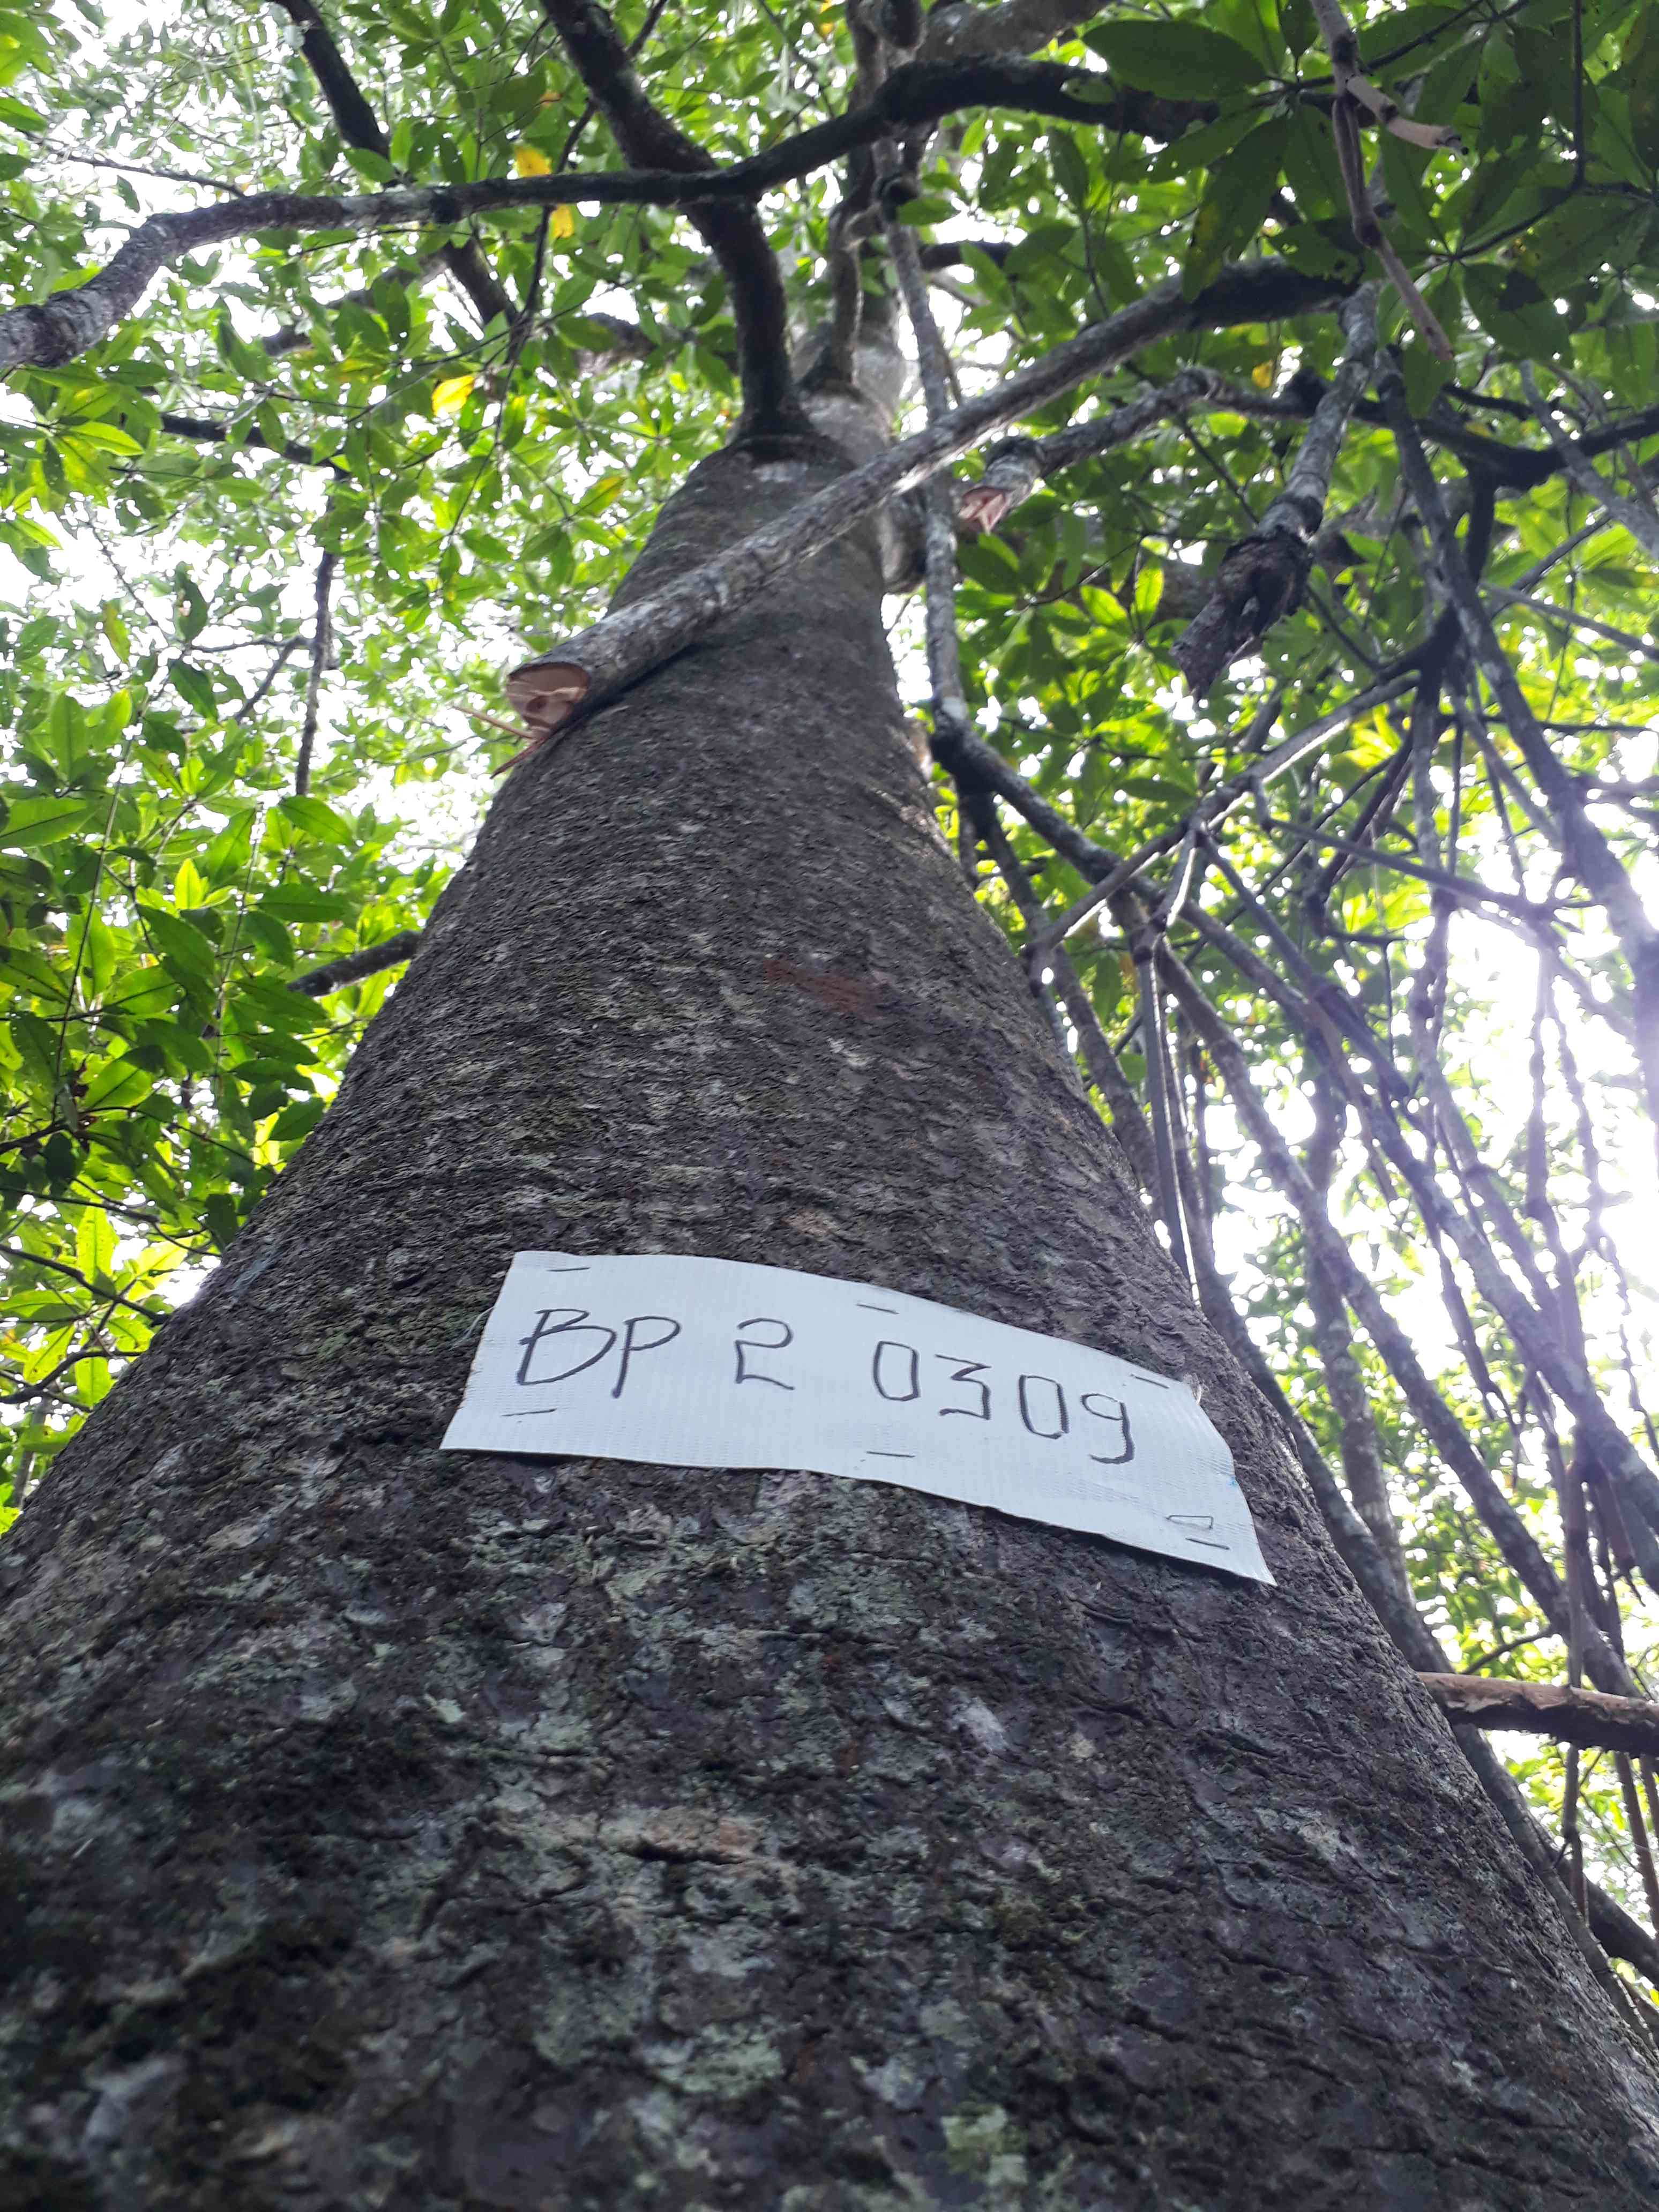 BP 2 0309